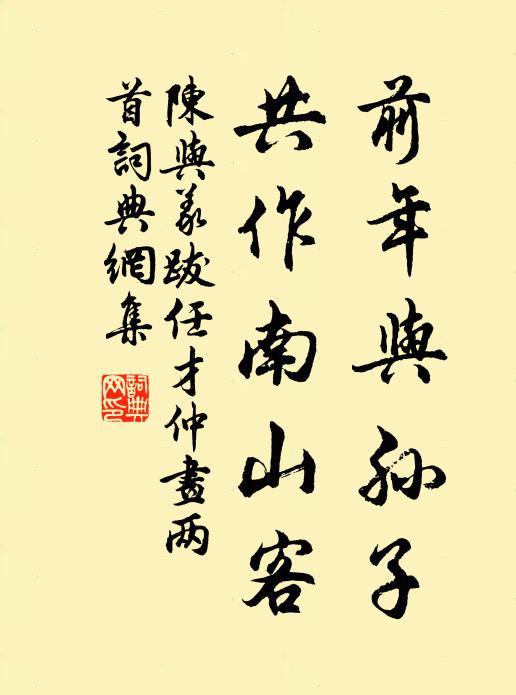 前年與孙子
共作南山客
陳與義跋任才仲畫两
首詞典網集
詞典
网印